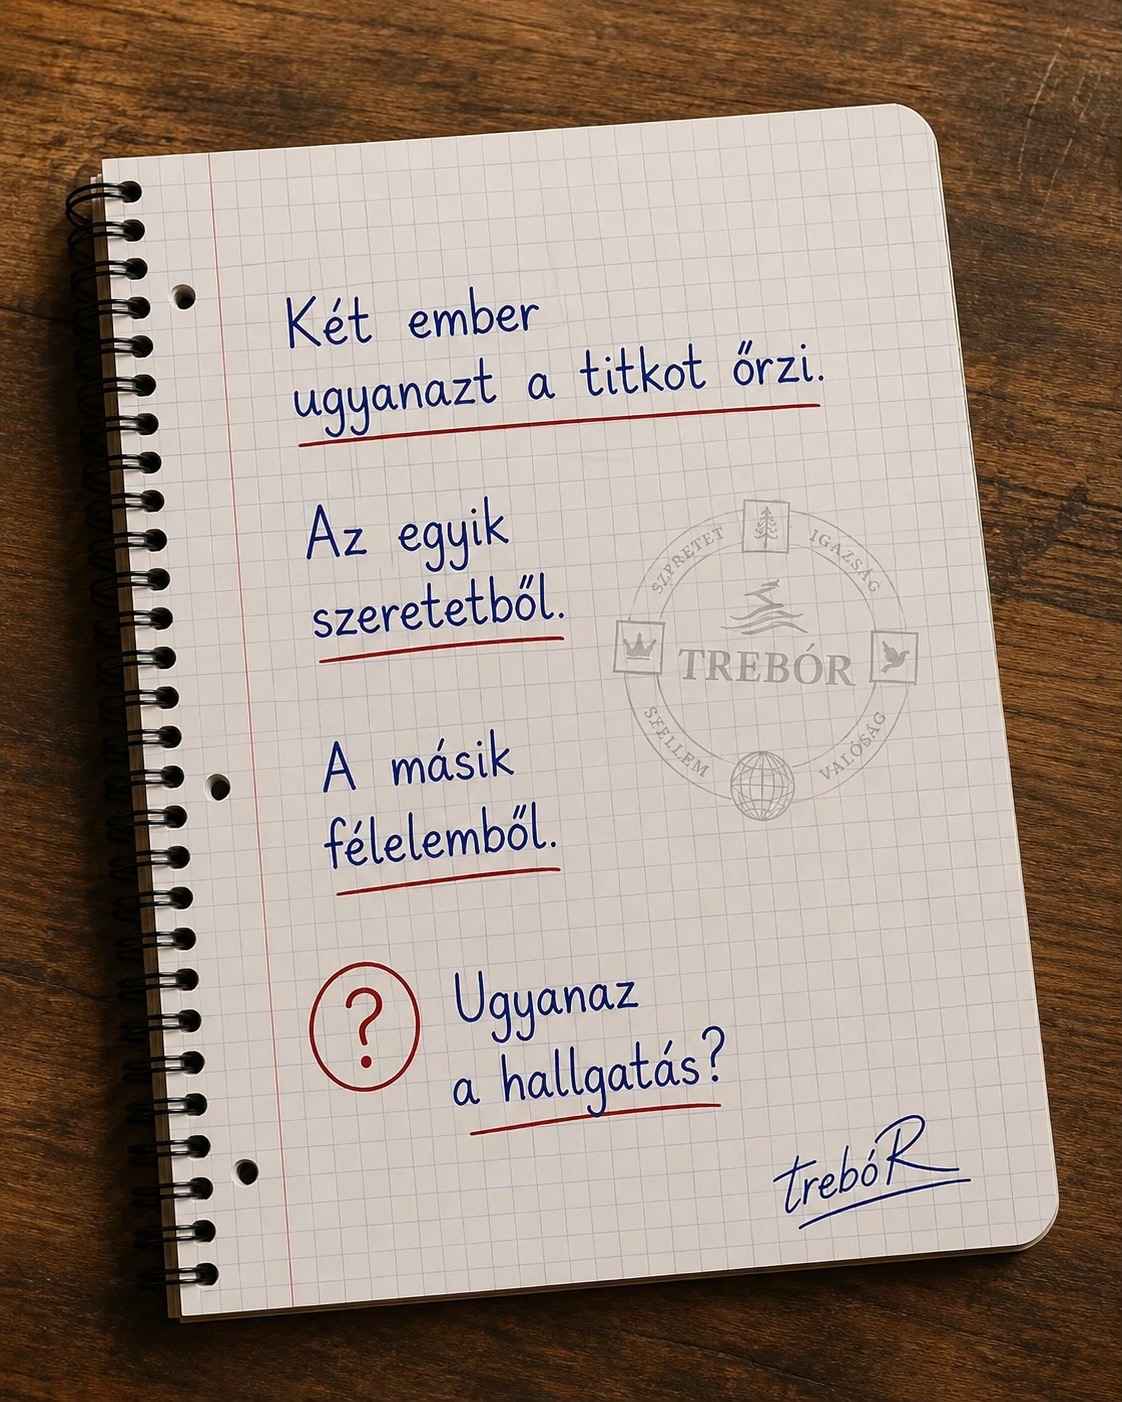 Két ember
ugyanazt a titkot őrzi.
Az egyik
szeretetből.
SZERETET
IGAZSÁG
TREBÓR
SZELLEM
VALÓSÁG
A másik
félelemből.
?
Ugyanaz
a hallgatás?
trebóR